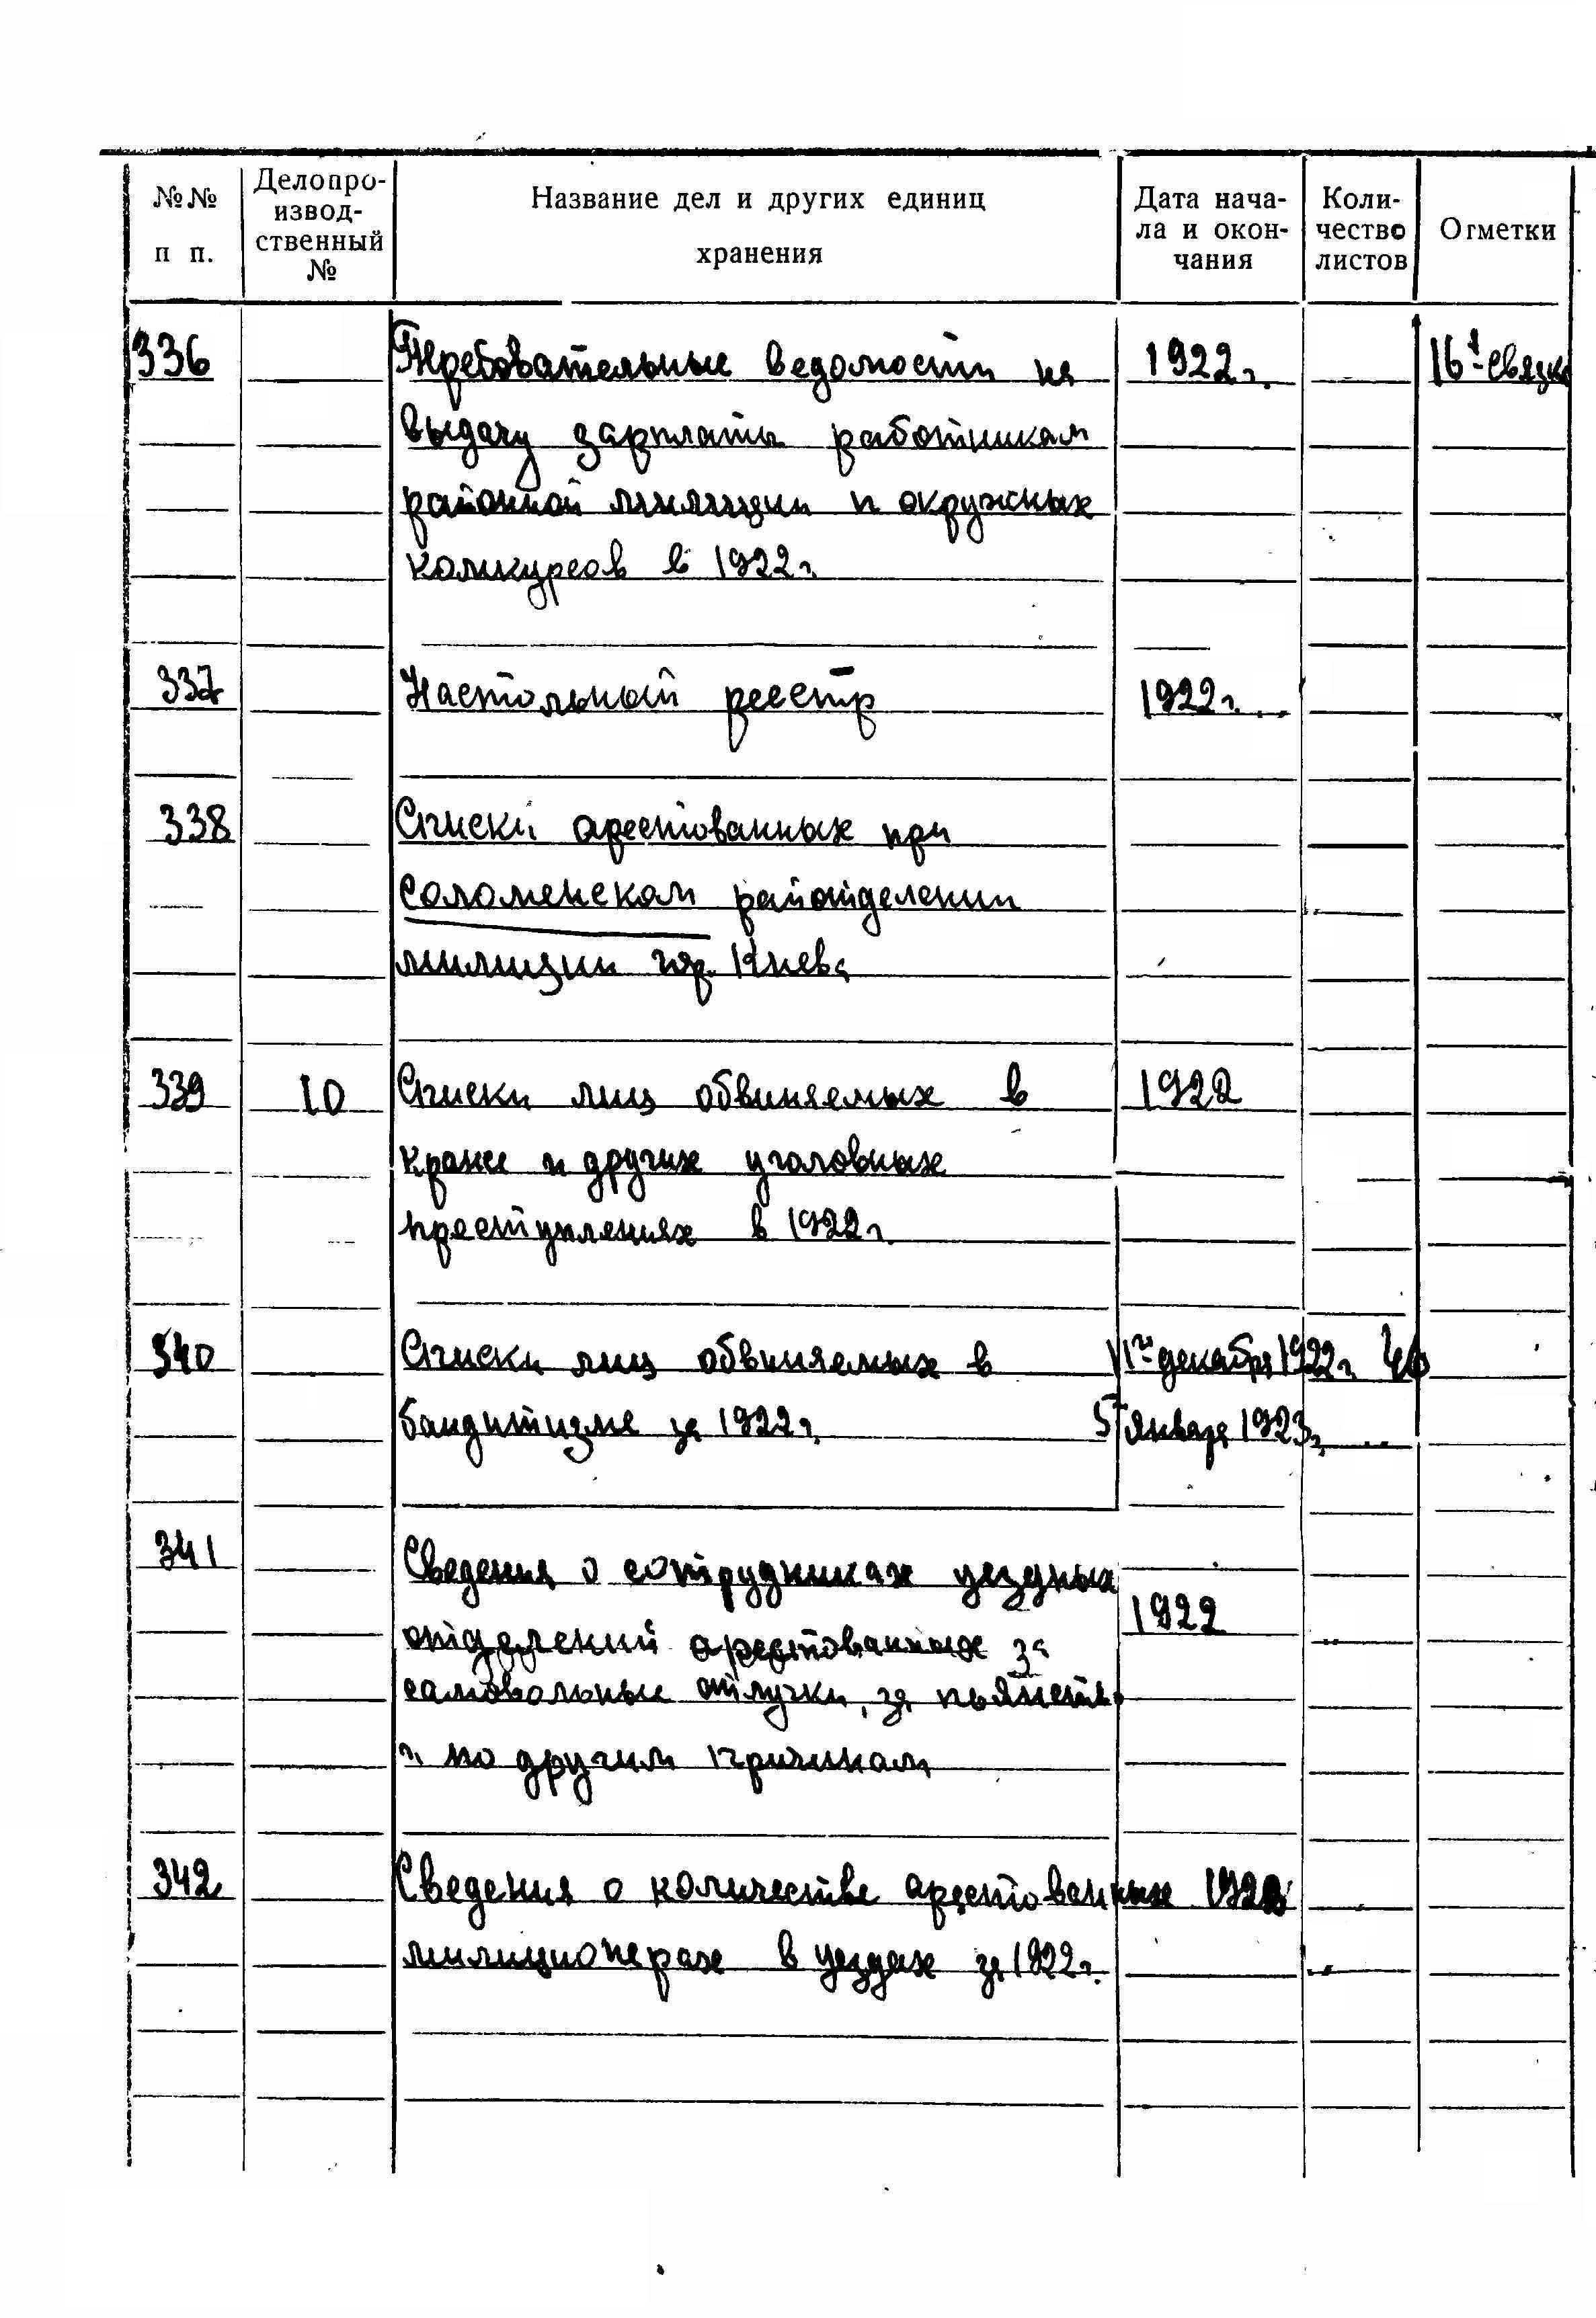 №№ п п.
Делопро-
извод-
ственный
№
Название дел и других единиц
хранения
Дата нача-
ла и окон-
чания
Коли-
чество
листов
Отметки
336 Требовательные ведомости на 1922г. 16я связка
выдачу зарплаты работникам
районной милиции и окружных
в 1922г.
337 Настольный реестр 1922г.
338 Списки арестованных при
Соломенском райотделении
милиции гор. Киева
339 10 Списки лиц обвиняемых в 1922
краже и других уголовных
преступлениях в 1922г.
340 Списки лиц обвиняемых в декабря 1922г.
бандитизме за 1922г. 5 января 1923г.
341 Сведения о сотрудниках уездных
1922
отделений арестованных за
самовольные отлучки, за пьянство
и по другим причинам
342 Сведения о количестве арестованных 1922
милиционерах в уездах за 1922г.